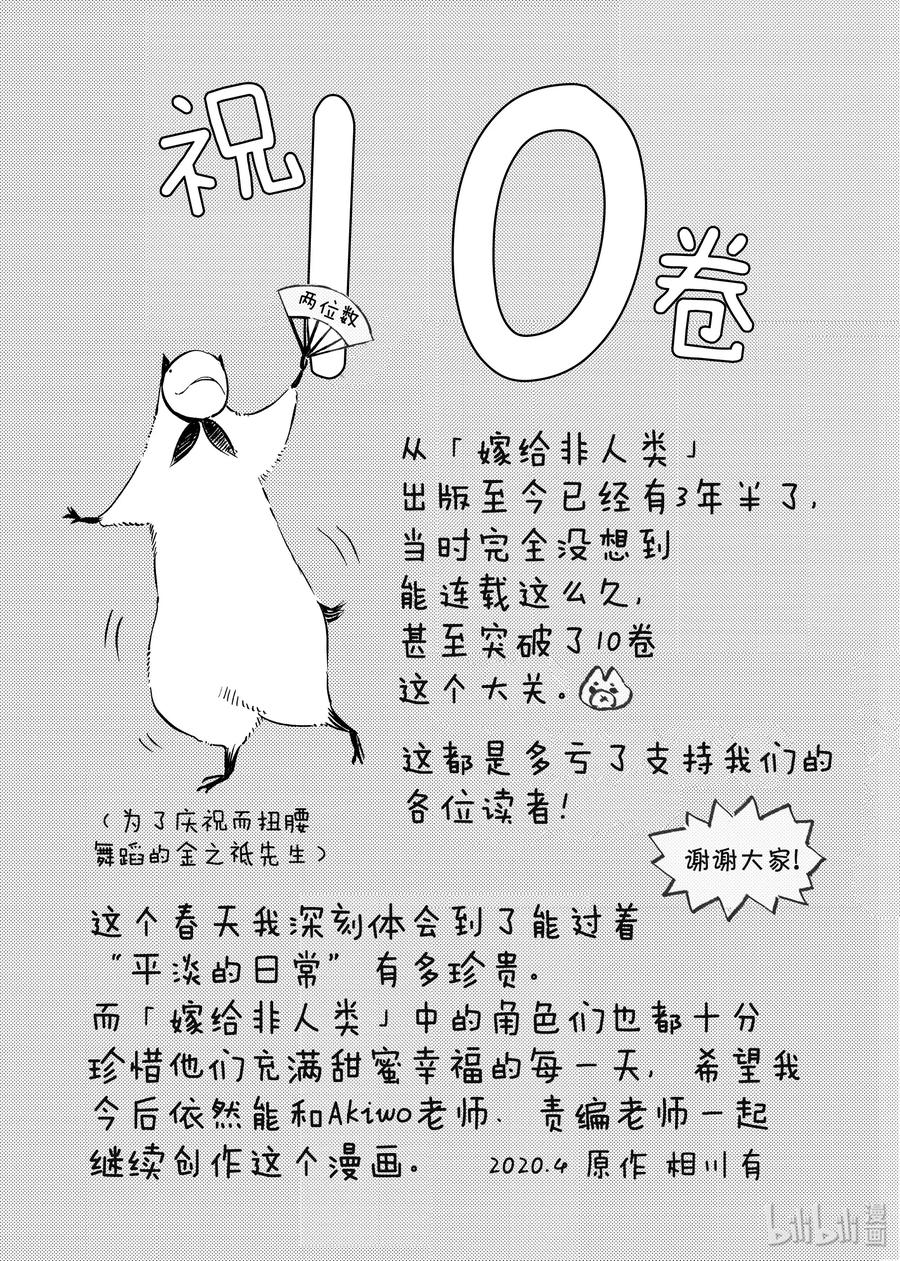 祝10卷
两位数
从「嫁给非人类」
出版至今已经有3年半了,
当时完全没想到
能连载这么久,
甚至突破了10卷
这个大关。
这都是多亏了支持我们的
各位读者!
谢谢大家!
(为了庆祝而扭腰
舞蹈的金之祗先生)
这个春天我深刻体会到了能过着
“平淡的日常”有多珍贵。
而「嫁给非人类」中的角色们也都十分
珍惜他们充满甜蜜幸福的每一天, 希望我
今后依然能和Akiwo老师、责编老师一起
继续创作这个漫画。 2020.4 原作 相川有
bilibili漫画